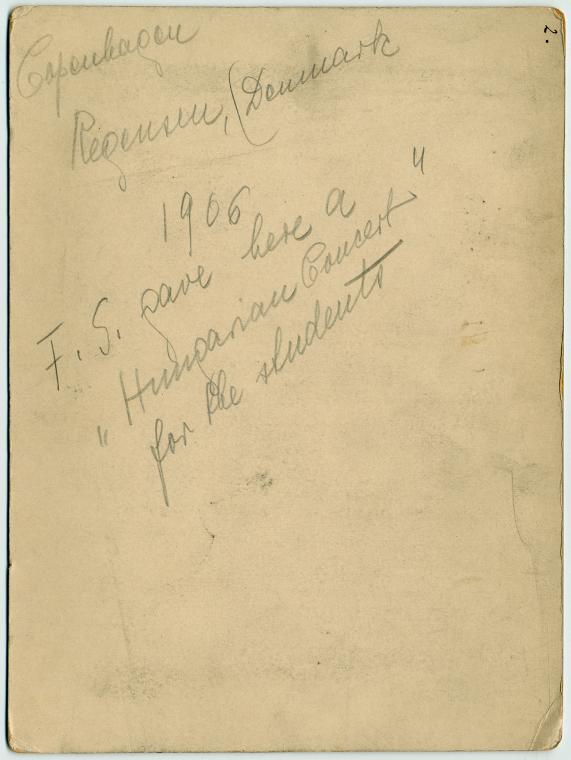 2.
Copenhagen
Regensen, (Denmark
1906
F. S. gave here a
"Hungarian Concert"
for the students